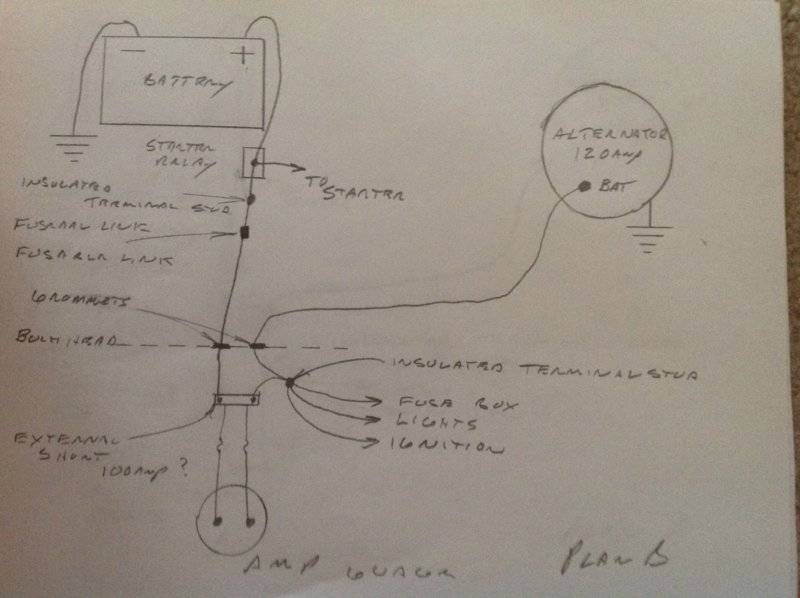 − +
BATTERY
STARTER
RELAY
TO
STARTER
ALTERNATOR
120 AMP
BAT
INSULATED
TERMINAL STUD
FUSEABL LINK
FUSABLE LINK
GROMMETS
BULKHEAD
INSULATED TERMINAL STUD
FUSE BOX
LIGHTS
IGNITION
EXTERNAL
SHUNT
100 AMP ?
AMP GUAGE
PLAN B